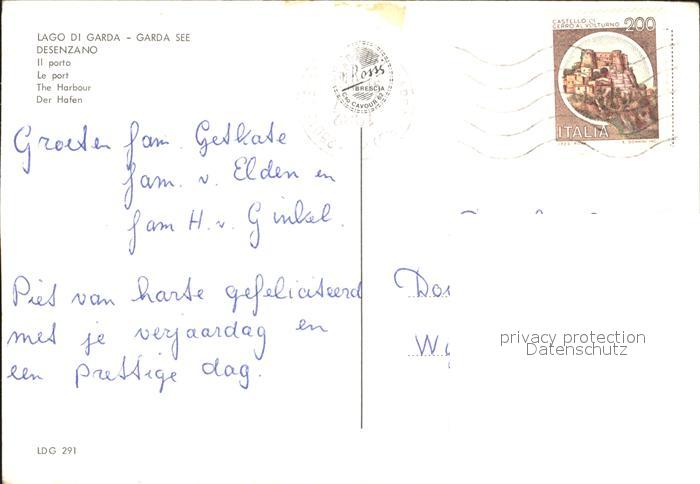 LAGO DI GARDA – GARDA SEE
DESENZANO
Il porto
Le port
The Harbour
Der Hafen
Ross
BRESCIA
C.SO CAVOUR 62
CASTELLO DI
CERRO AL VOLTURNO 200
ITALIA
Groeten fam. Getkate
fam. v. Elden en
fam H. v. Ginkel.
Piet van harte gefeliciteerd
met je verjaardag en
een prettige dag.
privacy protection
Datenschutz
LDG 291